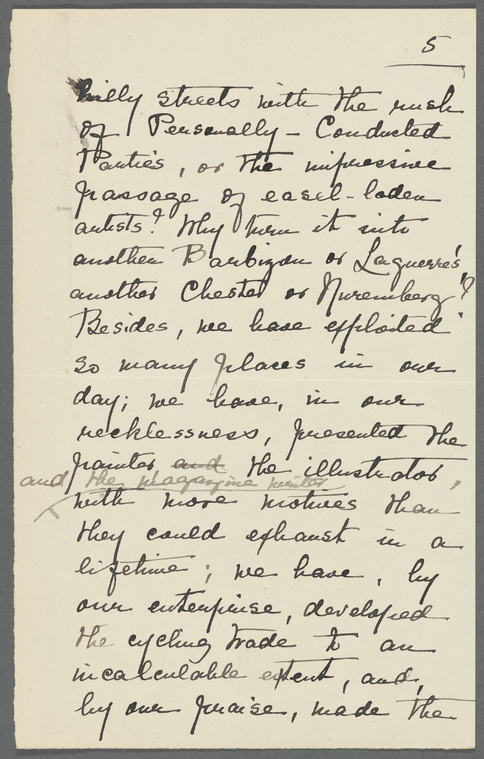 5
hilly streets with the rush
of Personally-Conducted
Parties, or the impressive
passage of easel-laden
artists? Why turn it into
another Barbizon or Laguerre's,
another Chester or Nuremberg?
Besides, we have exploited
so many places in our
day; we have, in our
recklessness, presented the
painter and the illustrator,
and the magazine writer
with more motives than
they could exhaust in a
lifetime; we have, by
our enterprise, developed
the cycling trade to an
incalculable extent, and,
by our praise, made the